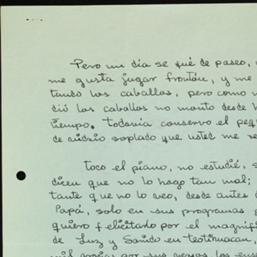 Pero un dia se qué de paseo,
me gusta jugar frontón, y me
tando los caballos, pero como
dió los caballos no monto desde
tiempo. todavia conservo el
de vidrio soplado que usted me
Toco el piano, no estudié,
dicen que no lo hago tan mal;
tante que no lo veo, desde antes
Papá, solo en sus programas
quiero felicitarlo por el
de Luz y Sonido en teotihuacan,
mil por sus